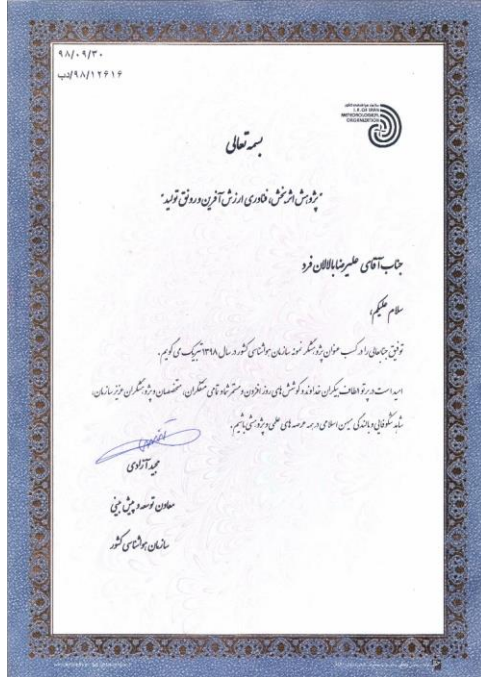 ۹۸/۰۹/۳۰
۹۸/۱۲۶۱۶/دب
سازمان هواشناسی کشور
I. R. OF IRAN
METEOROLOGICAL
ORGANIZATION
بسمه تعالی
"پژوهش اثربخش، فناوری ارزش آفرین و رونق تولید"
جناب آقای علیرضا بالالان فرد
سلام علیکم،
توفیق جنابعالی را در کسب عنوان پژوهشگر نمونه سازمان هواشناسی کشور در سال ۱۳۹۸ تبریک می گویم.
امید است در پرتو الطاف بیکران خداوند و کوشش های روز افزون و مستمر شما و تمامی متفکران، متخصصان و پژوهشگران عزیز سازمان،
شاهد شکوفایی و بالندگی میهن اسلامی در همه عرصه های علمی و پژوهشی باشیم.
مجید آزادی
معاون توسعه و پیش بینی
سازمان هواشناسی کشور